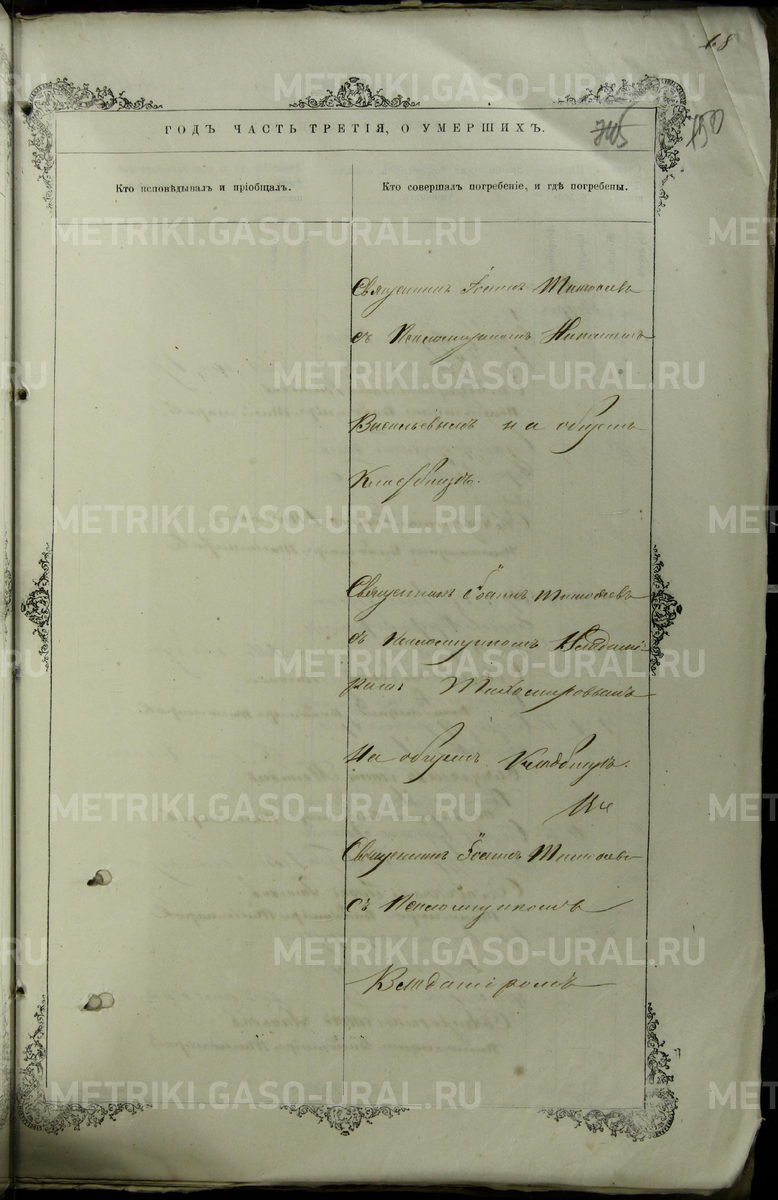 68
ГОДЪ ЧАСТЬ ТРЕТІЯ, О УМЕРШИХЪ.
745
150
Кто исповѣдывалъ и пріобщалъ.
Кто совершалъ погребеніе, и гдѣ погребены.
Священникъ Іоаннъ
съ Псаломщикомъ
Васильевымъ на общемъ
Кладбищѣ.
Священникъ Іоаннъ
съ Псаломщикомъ Владимі
ромъ Тихомировымъ
На общемъ Кладбищѣ.
Священникъ Іоаннъ
съ Псаломщикомъ
Владиміромъ
METRIKI.GASO-URAL.RU